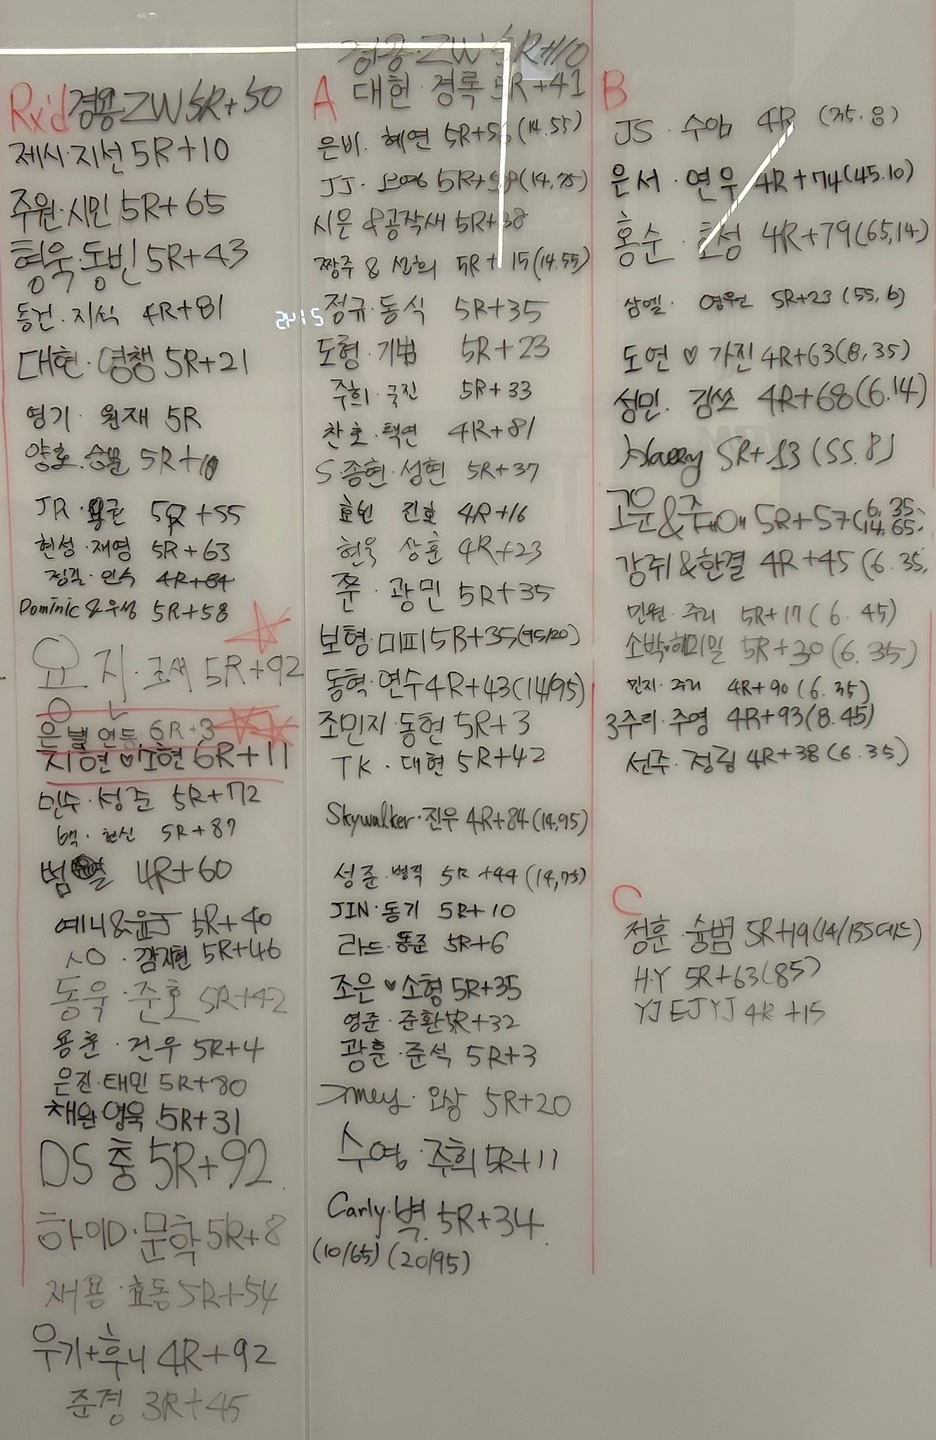 Rx'd
경용·ZW 5R+50
제시·지선 5R+10
주원·시민 5R+65
형욱·동빈 5R+43
동건·지식 4R+81
대현·영챙 5R+21
영기·원재 5R
양호·승믈 5R+
JR· 5R+55
현성·재영 5R+63
정길·인수 4R+84
Dominic & 우성 5R+58
요지·조새 5R+92
은별 연동 6R+3
지현♡소현 6R+11
민수·성준 5R+72
백·현신 5R+87
범 4R+60
예니&윤J 5R+40
ㅅㅇ·감자현 5R+46
동욱·준호 5R+42
용훈·건우 5R+4
은진·태민 5R+80
채완 영욱 5R+31
DS 충 5R+92
하이D·문학 5R+8
재용·효동 5R+54
우기+후니 4R+92
준경 3R+45
A
경용·ZW 5R+10
대헌·경록 5R+41
은비·혜연 5R+ (14.55)
JJ· 5R+ (14,75)
시은 &공작새 5R+38
짱주 & 5R+15(14.55)
정규·동식 5R+35
도형·기범 5R+23
주희·국진 5R+33
찬호·택연 4R+81
S·종현·성현 5R+37
효빈 진호 4R+16
현욱 상훈 4R+23
쭌·광민 5R+35
보형·미피 5R+35(95/20)
동혁·연수 4R+43(14/95)
조민지·동현 5R+3
TK·대현 5R+42
Skywalker·진우 4R+84(14,95)
성준·병직 5R+44(14,75)
JIN·동기 5R+10
라드·풍준 5R+6
조은♥소형 5R+35
영준·준환 5R+32
광훈·준석 5R+3
·오상 5R+20
수영·주희 5R+11
Carly·벽 5R+34
(10/65) (20/95)
B
JS·수암 4R (35.8)
은서·연우 4R+74(45.10)
홍순·효성 4R+79(65,14)
삼엘·영원 5R+23 (55,6)
도연♡가진 4R+63(8,35)
성민·김쏘 4R+68(6.14)
Harry 5R+13(55.8)
고문&쥬 5R+57(6,35, 14,65)
강쥐&한결 4R+45(6.35,
민원·주리 5R+17(6.45)
소박♥해미밀 5R+30(6.35)
민지·주리 4R+90(6.35)
3주리·주영 4R+93(8.45)
선주·정림 4R+38(6.35)
C
정훈·슝범 5R+19(14/155데드)
H·Y 5R+63(85)
YJEJYJ 4R+15